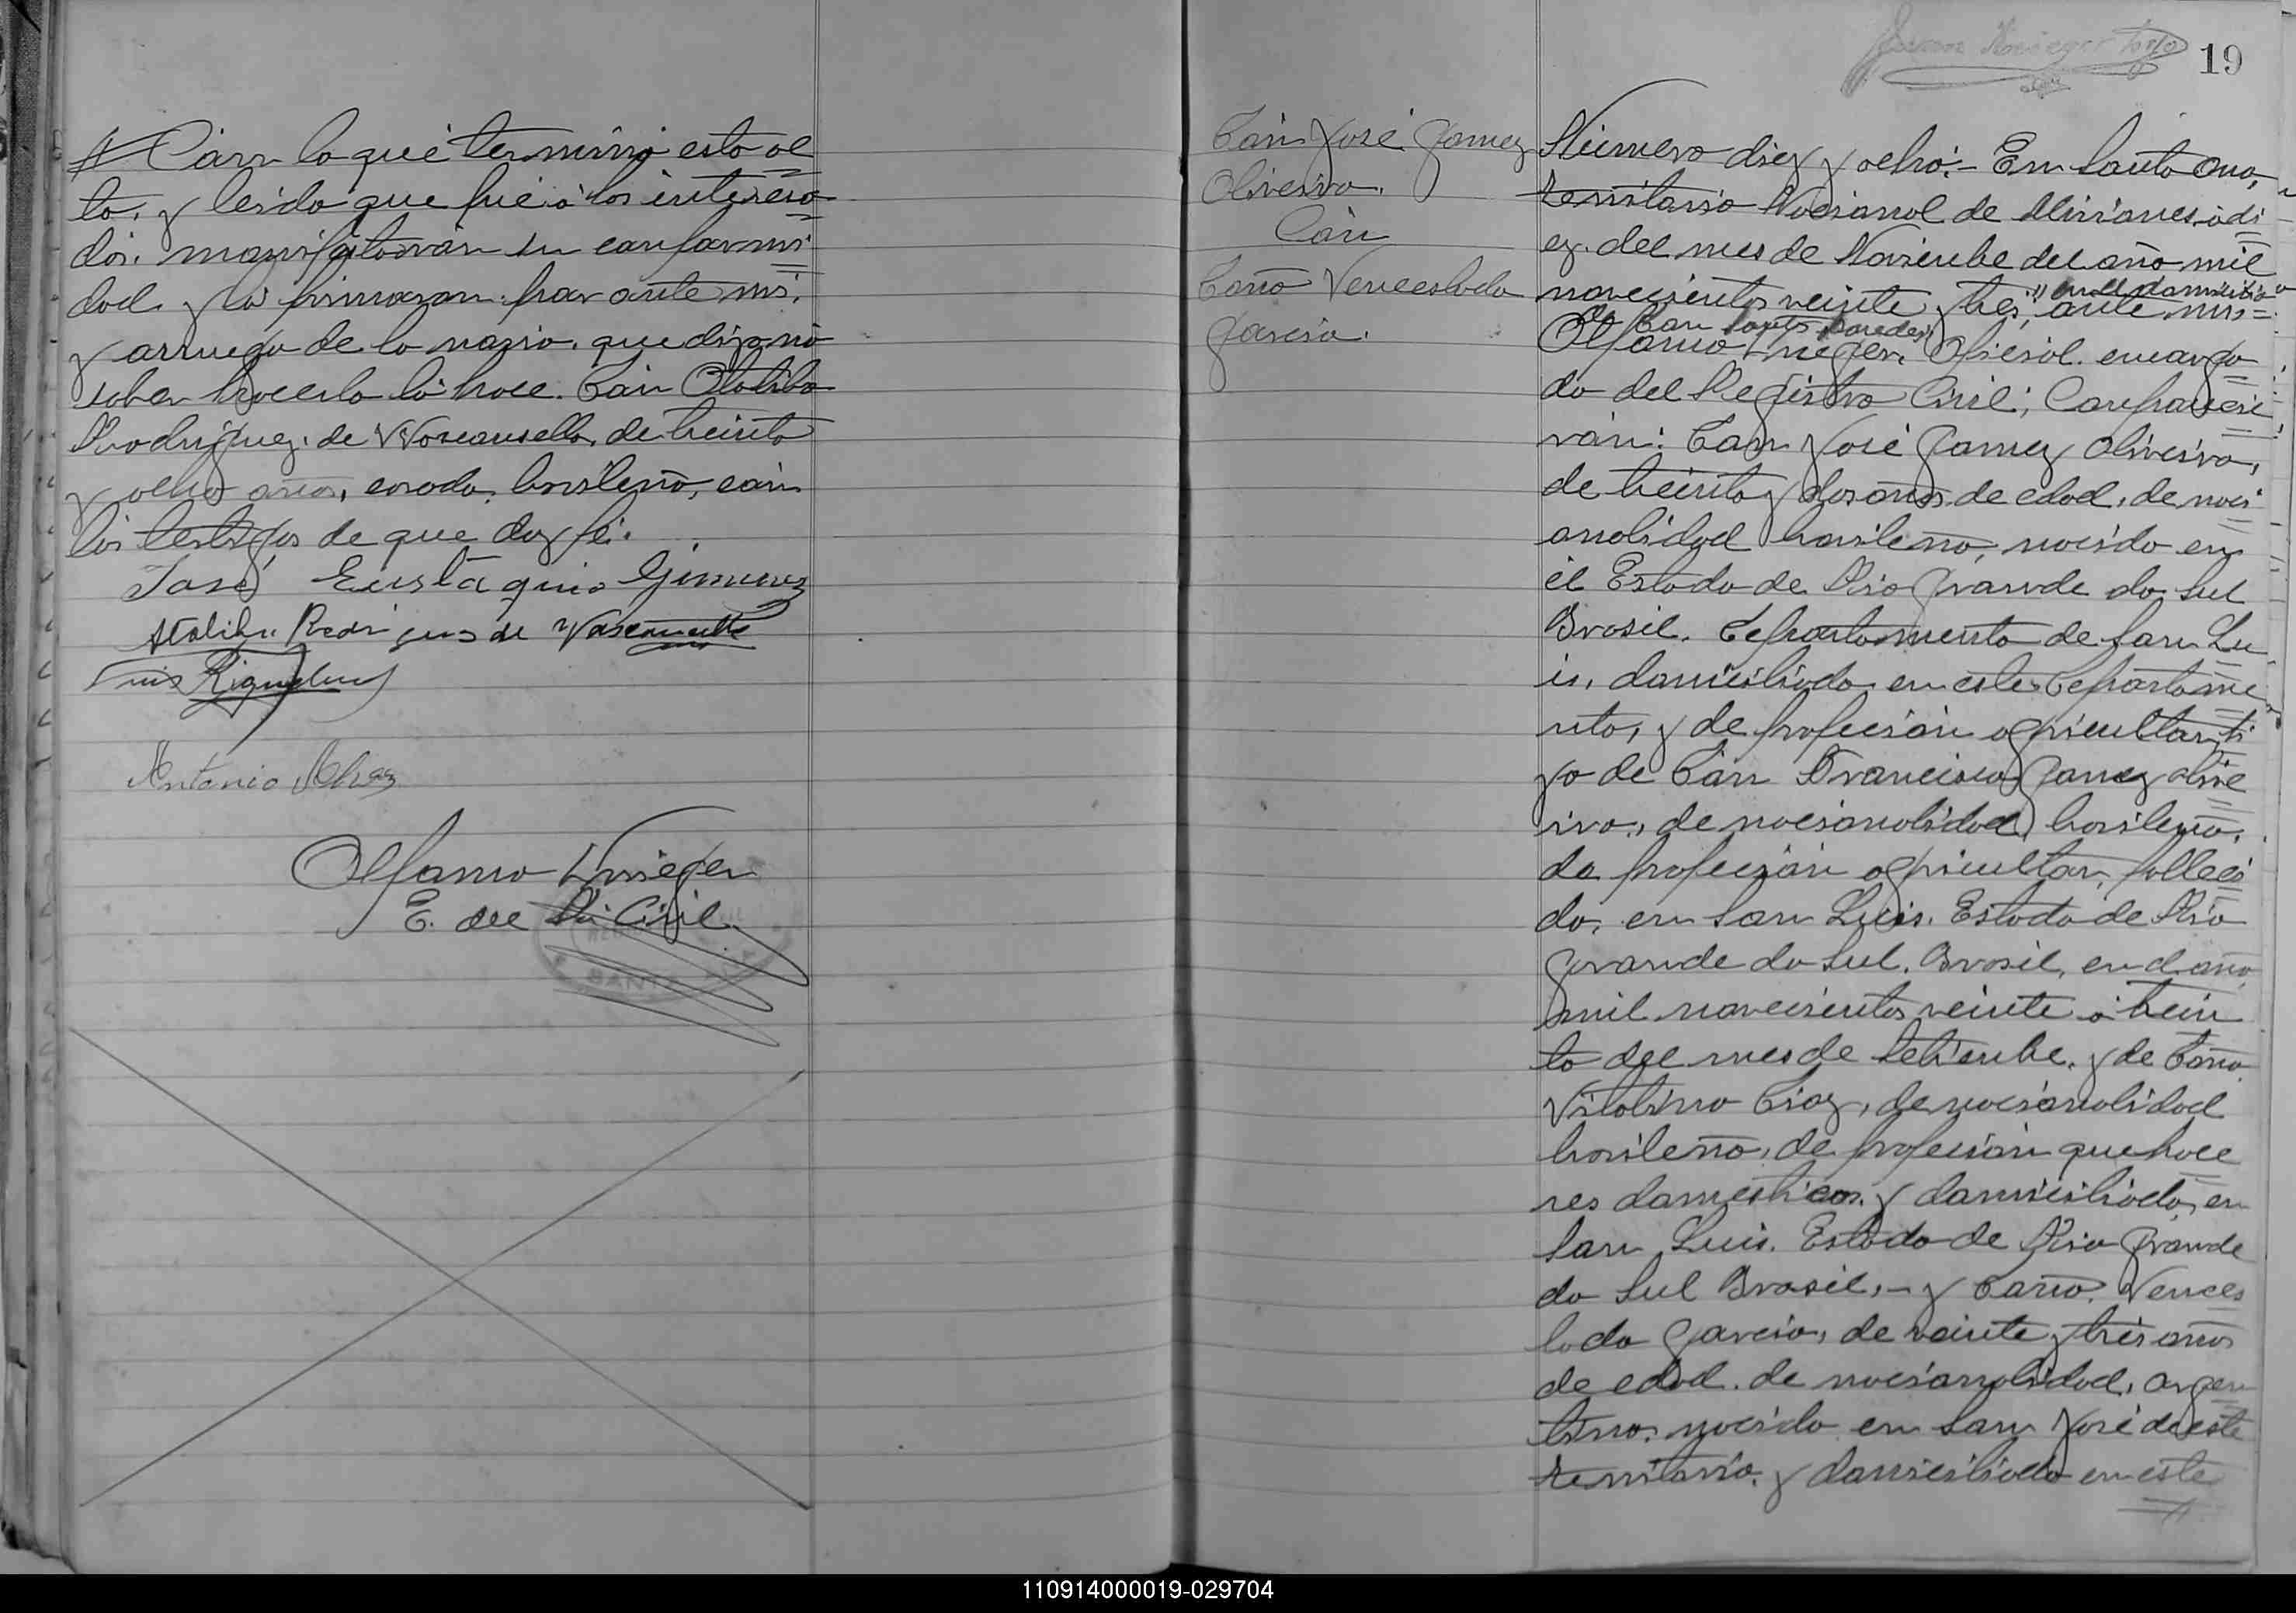 Con lo que termino esta ac
ta, y leida que fué á los interesa
dos. manifestaron su conformi
dad y la firmaron por ante mi,
y arruego de la novia, que dijo no
saber hacerlo lo hace. Don Otaliba
Rodriguez de Vasconsello, de treinta
y ocho años, casado, brasileño, con
los testigos de que doy fé.
José Eustaquio Gimenez
Rodrigues de Vasconcellos
Luis Riquelme
Antonio
Olfanio Krieger
E. del R. Civil
SANTA
19
Don José Gomez
Oliveira.
Con
Doña Venceslada
Garcia.
Número diez y ocho.- En Santa Ana,
territorio Nacional de Misiones, á di
ez del mes de Noviembre del año mil
novecientos veinte y tres, "en el domicilio
de Don Santos Paredes" ante mi
Olfanio Krieger, Oficial encarga
do del Registro Civil; Comparecie
ron: Don José Gomez Oliveira,
de treinta y dos años de edad, de naci
onalidad brasileña, nacido en
el Estado de Rio Grande do Sul
Brasil. Departamento de San Lu
is, domiciliado en este Departame
nto, y de profesión agricultor, hi
jo de Don Francisco Gomez Olive
ira, de nacionalidad brasilena,
de profesión agricultor, falleci
do, en San Luis. Estado de Rio
Grande do Sul. Brasil, en el año
mil novecientos veinte á trein
ta del mes de Setiembre, y de Doña
Vitalina Diaz, de nacionalidad
brasileña, de profesión quehace
res domesticos y domiciliada en
San Luis. Estado de Rio Grande
do Sul Brasil,- y Doña Vences
lada Garcia, de veinte y tres años
de edad. de nacionalidad, argen
tina, nacida en San José de este
territorio, y domiciliada en este
110914000019-029704